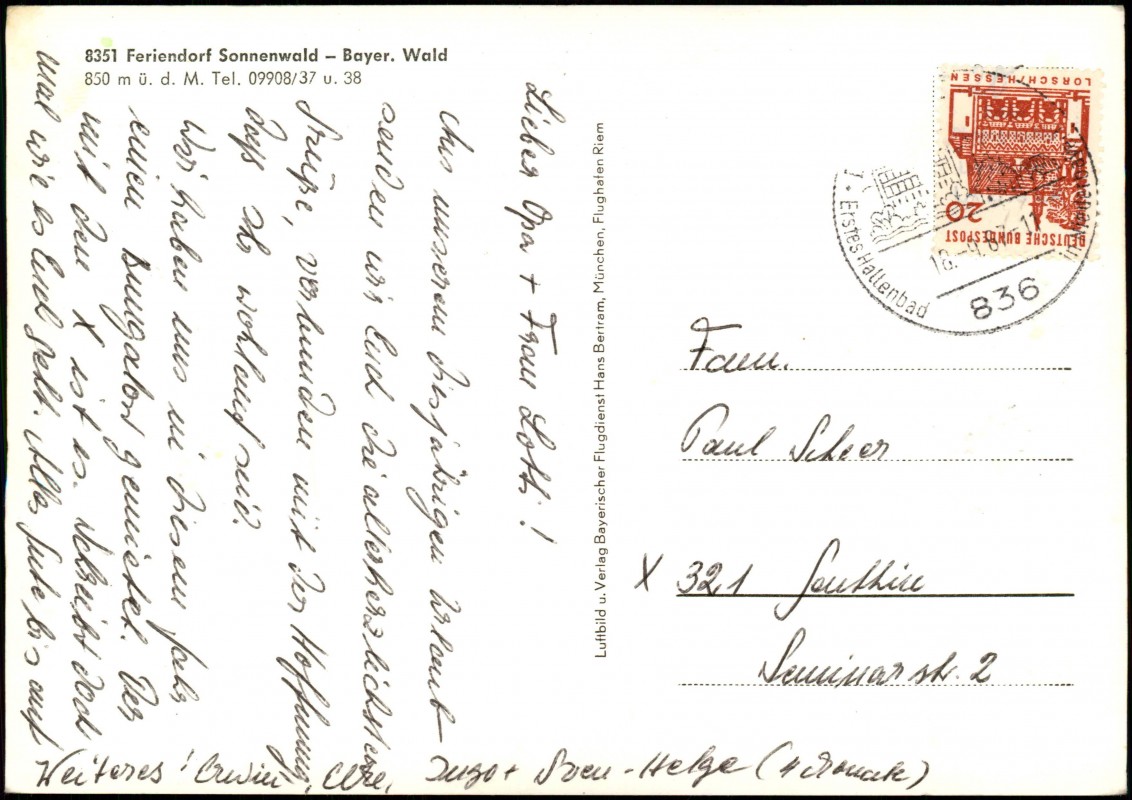 8351 Feriendorf Sonnenwald – Bayer. Wald
850 m ü. d. M. Tel. 09908/37 u. 38
Lieber Opa + Frau Lotti!
Aus unserem diesjährigen Urlaub
senden wir Euch die allerherzlichsten
Grüße, verbunden mit der Hoffnung,
dass Ihr wohlauf seid.
Wir haben uns in diesem Jahr
einen Bungalow gemietet. Der
mit dem X ist es. Schreibt doch
mal wie es Euch geht. Alles Gute bis auf
Weiteres! Erwin, Elke, Ingo + Sven-Helge (4 Monate)
Luftbild u. Verlag Bayerischer Flugdienst Hans Bertram, München, Flughafen Riem
LORSCH/HESSEN
20
DEUTSCHE BUNDESPOST
Erstes Hallenbad
836
Fam.
Paul Scheer
X 321 Genthin
Seminarstr. 2